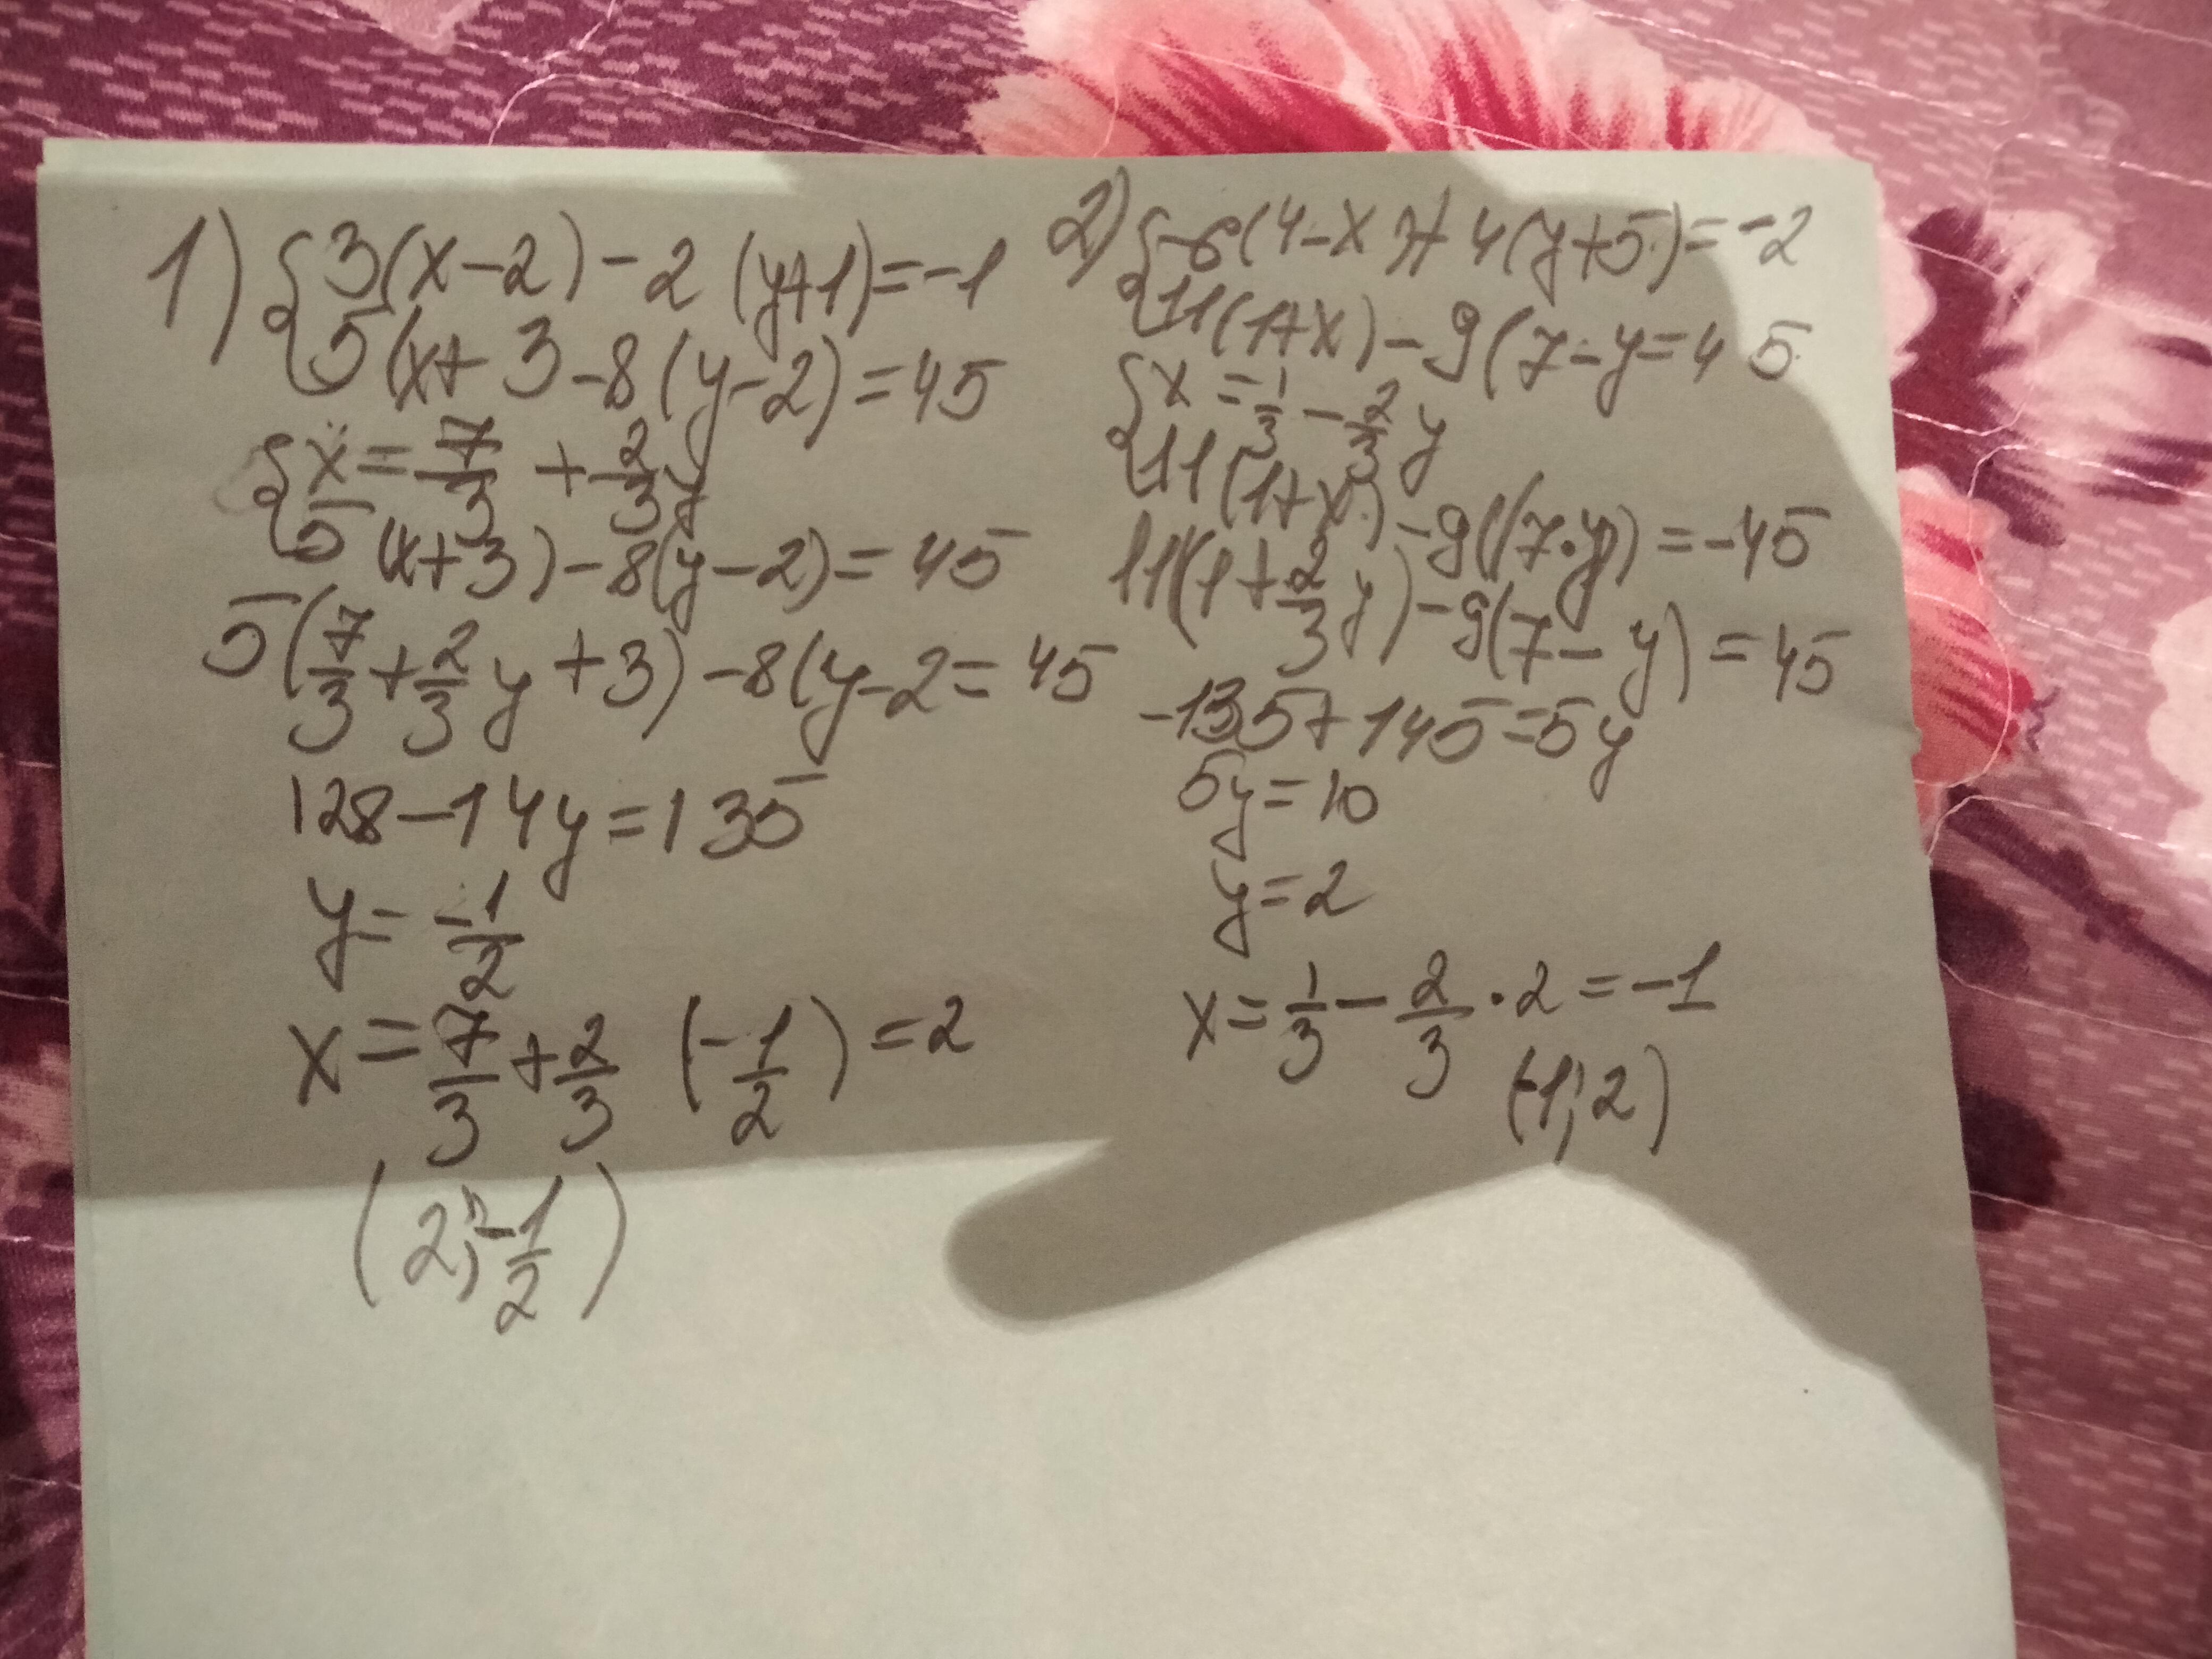 1) {3(x-2)-2(y+1)=-1
5(x+3-8(y-2)=45
{x=7/3+2/3y
5(x+3)-8(y-2)=45
5(7/3+2/3y+3)-8(y-2=45
128-14y=135
y=-1/2
x=7/3+2/3(-1/2)=2
(2;-1/2)
2) {-6(4-x)+4(y+5)=-2
11(1+x)-9(7-y=45
{x=1/3-2/3y
11(1+x)-9((7·y)=-45
11(1+2/3y)-9(7-y)=45
-135+145=5y
5y=10
y=2
x=1/3-2/3·2=-1
(-1;2)